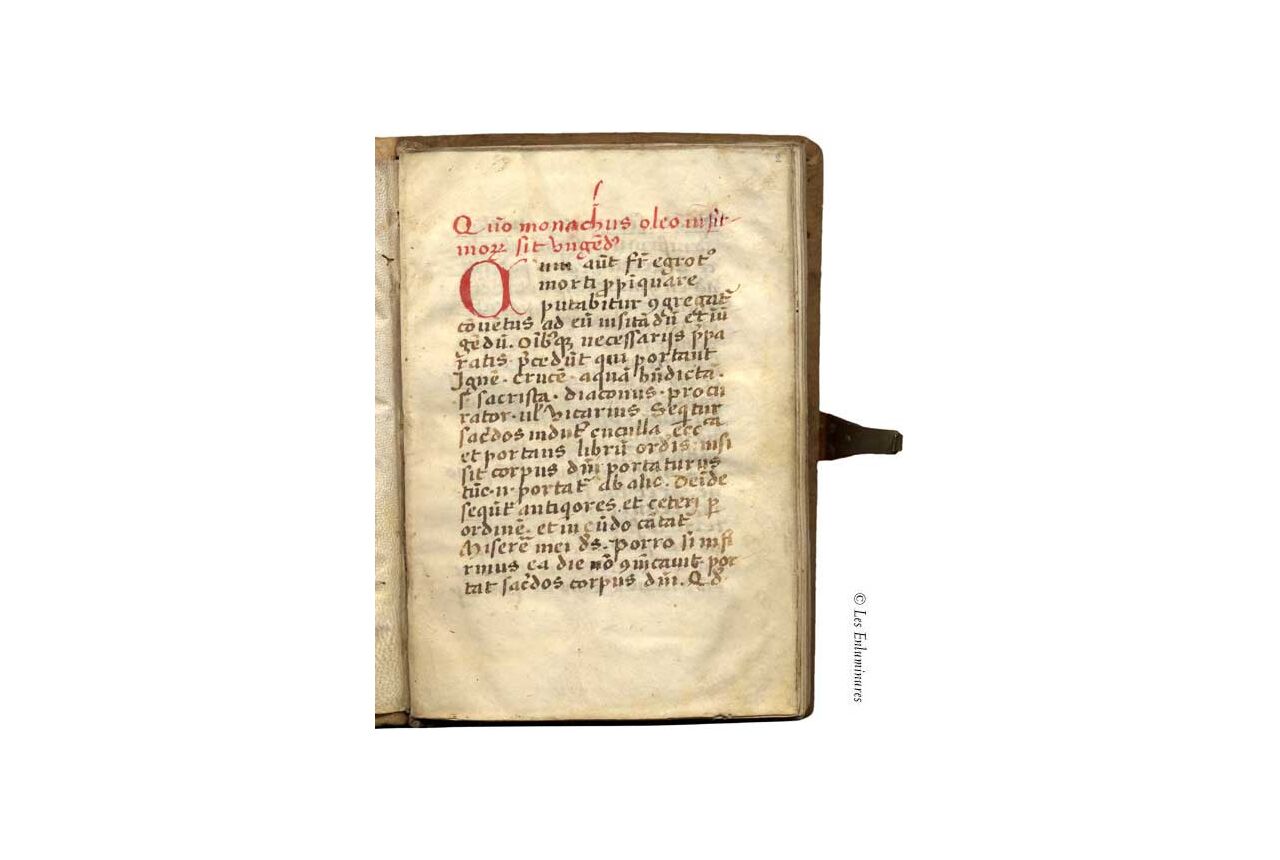 2
Quo᷃ monachus oleo infir
moꝝ sit vngēdꝰ
Qum aūt fr̄ egrotꝰ
morti ꝓpīquare
putabitur ꝯgregat᷑
cōuētus ad eū uisitādū et īū
gēdū. Oībꝰqꝫ necessarijs p̄pa
ratis p̄cedūt qui portant
Ignē. crucē. aquā bn̄dictā.
sꝫ sacrista. diaconus. procu
rator. ul̓ vicarius. Seqūtur
sac̄dos indutꝰ cuculla
et portans librū ordīs. nisi
sit corpus dn̄i portaturus
tūc. n̄. portat᷑ ab alio. Deīde
sequūt᷑ antiqores. et ceteri ꝑ
ordinē. et in eūdo cātāt
Miserē mei ds̄. Porro si infi
rmus ea die nō ꝯīcauit por
tat sac̄dos corpus dn̄i. Qd̓
© Les Enluminures